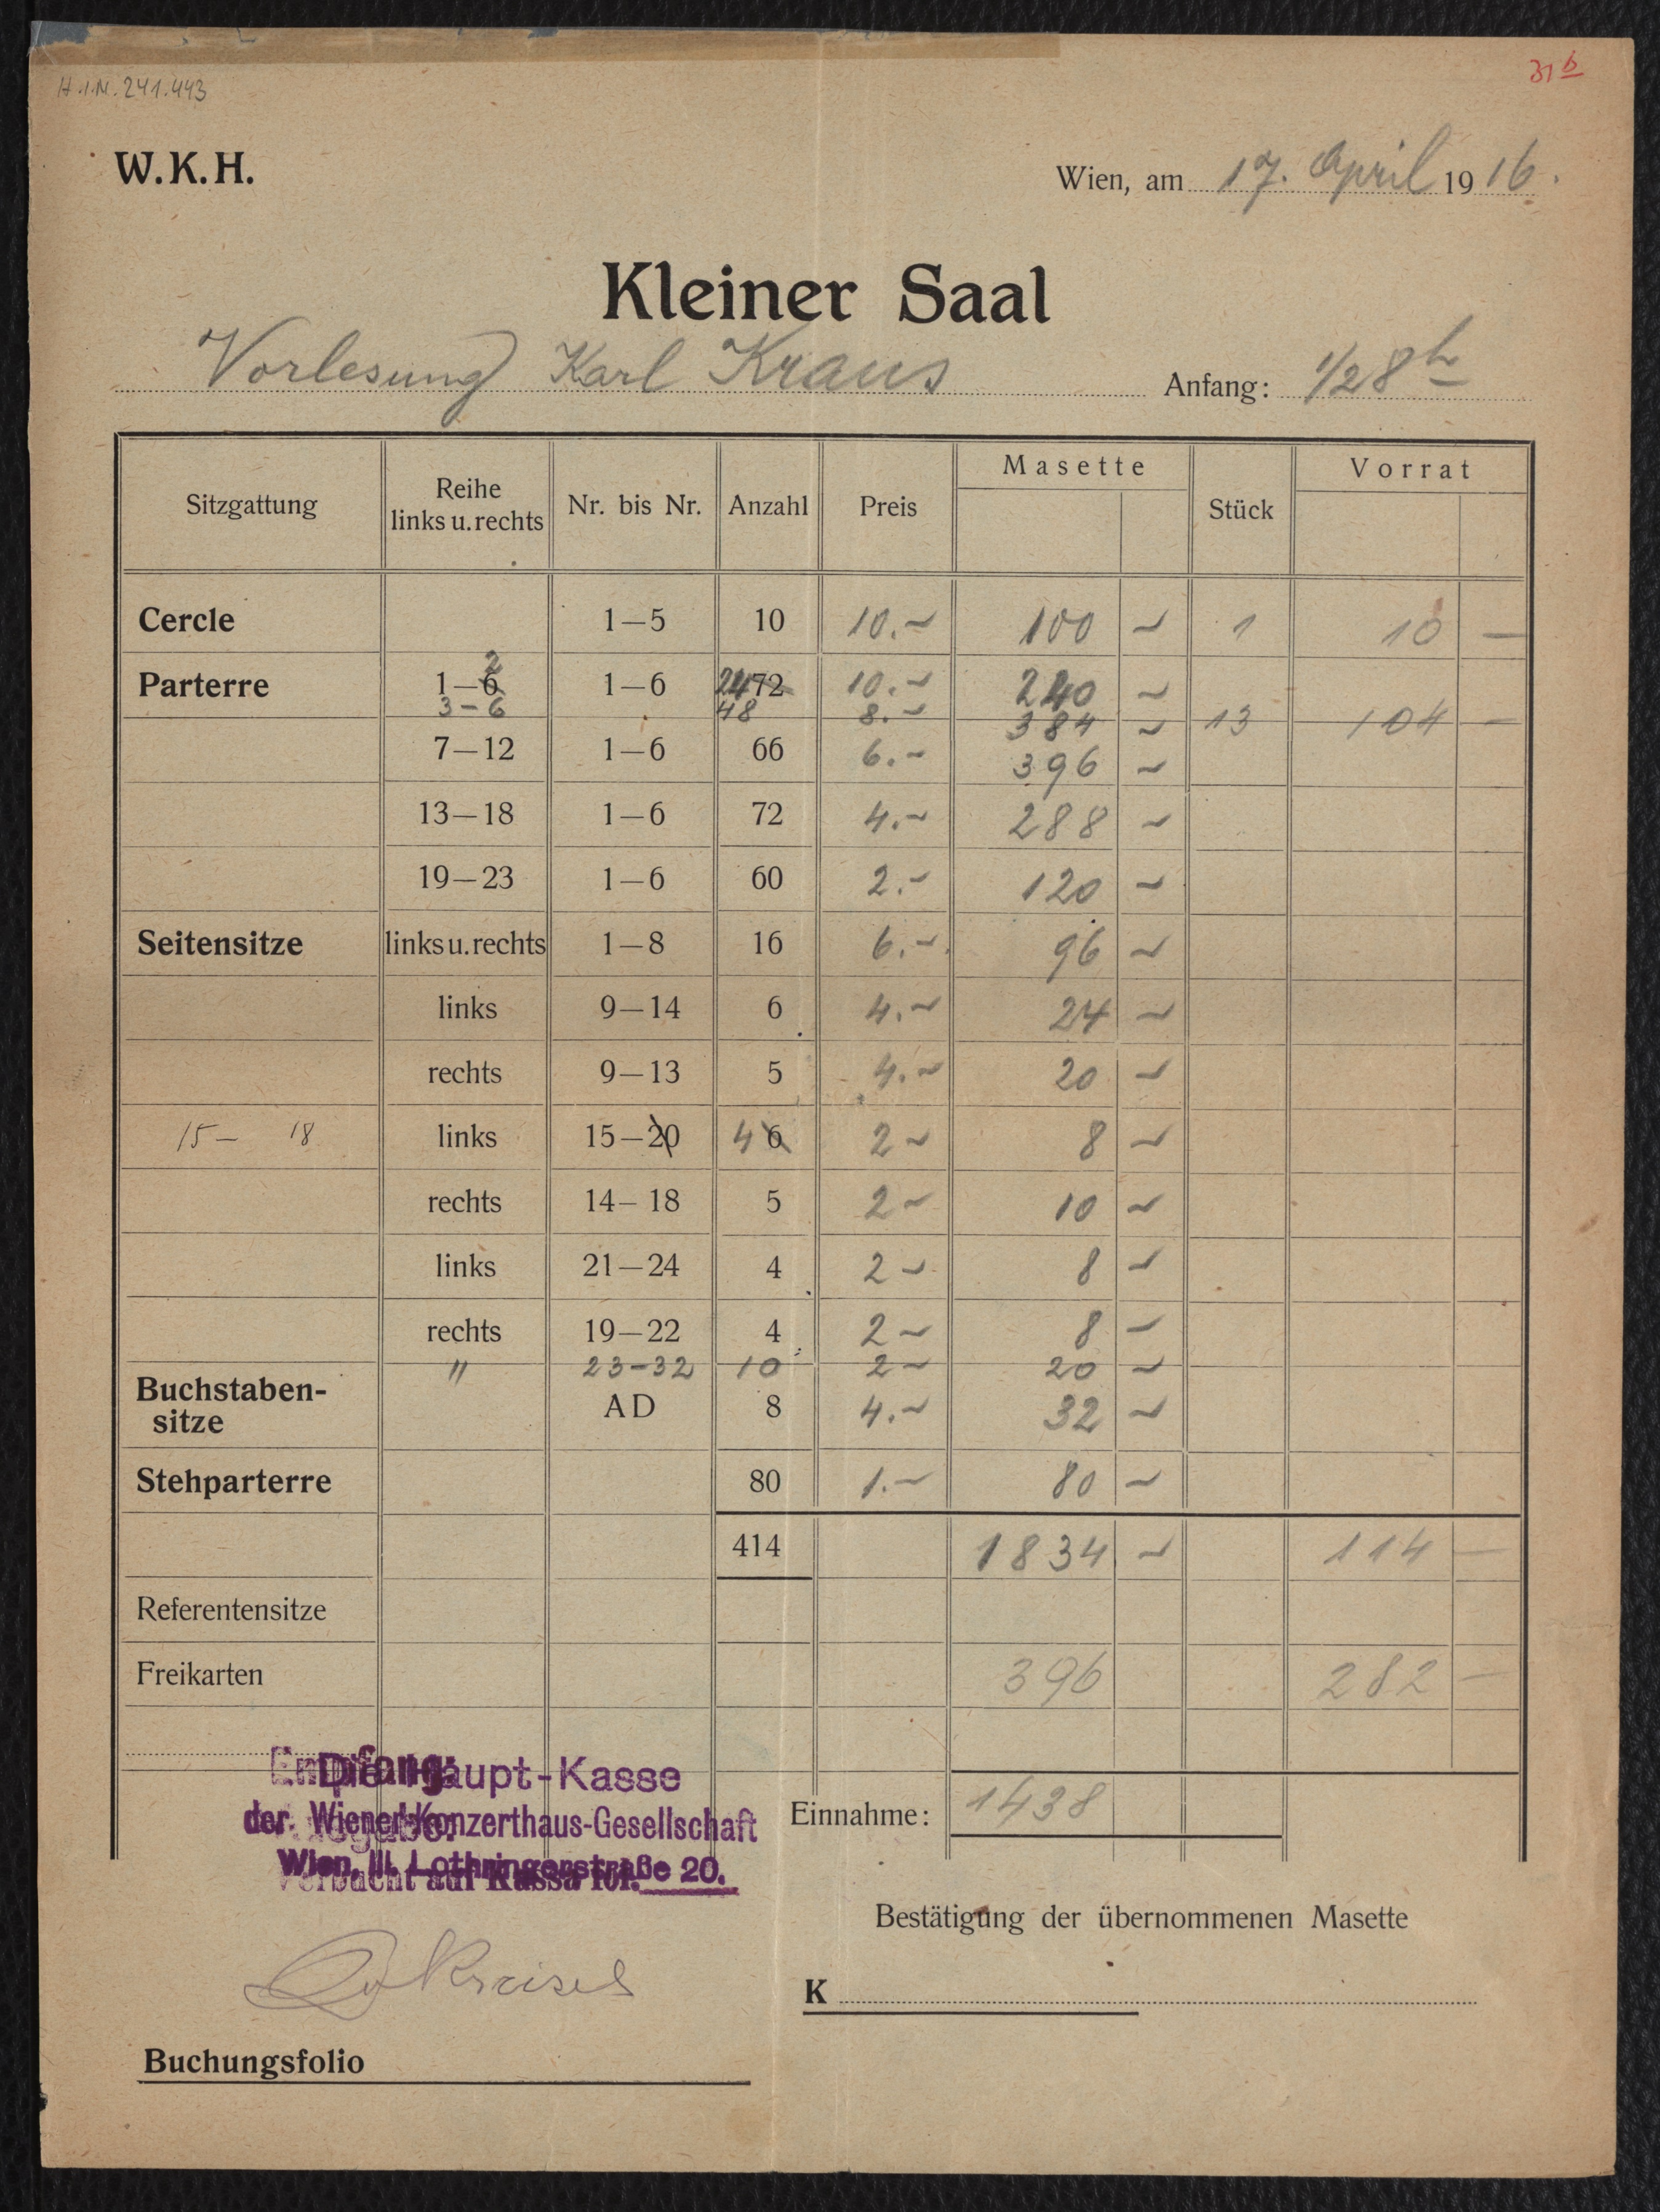 H.I.N. 241.443
31 b
W.K.H.
Wien, am 17. April 1916.
Kleiner Saal
Vorlesung Karl Kraus Anfang: 1/2 8 h
Sitzgattung Reihe links u. rechts Nr. bis Nr. Anzahl Preis Masette Stück Vorrat
Cercle 1—5 10 10.~ 100 ~ 1 10 —
2
Parterre 1—6 1—6 24 72 10.~ 240 ~
3—6 48 8.~ 384 ~ 13 104 —
7—12 1—6 66 6.~ 396 ~
13—18 1—6 72 4.~ 288 ~
19—23 1—6 60 2.~ 120 ~
Seitensitze links u. rechts 1—8 16 6.~ 96 ~
links 9—14 6 4.~ 24 ~
rechts 9—13 5 4.~ 20 ~
15— 18 links 15—20 4 6 2 ~ 8 ~
rechts 14— 18 5 2 ~ 10 ~
links 21—24 4 2 ~ 8 ~
rechts 19—22 4 2 ~ 8 ~
" 23—32 10 2 ~ 20 ~
Buchstaben-
sitze AD 8 4.~ 32 ~
Stehparterre 80 1.~ 80 ~
414 1834 ~ 114 —
Referentensitze
Freikarten 396 282 —
Empfang:
Die Haupt-Kasse
der Wiener Konzerthaus-Gesellschaft
Wien, III. Lothringerstraße 20.
Verbucht auf Kassa fol.
Einnahme: 1438
Bestätigung der übernommenen Masette
K
Buchungsfolio